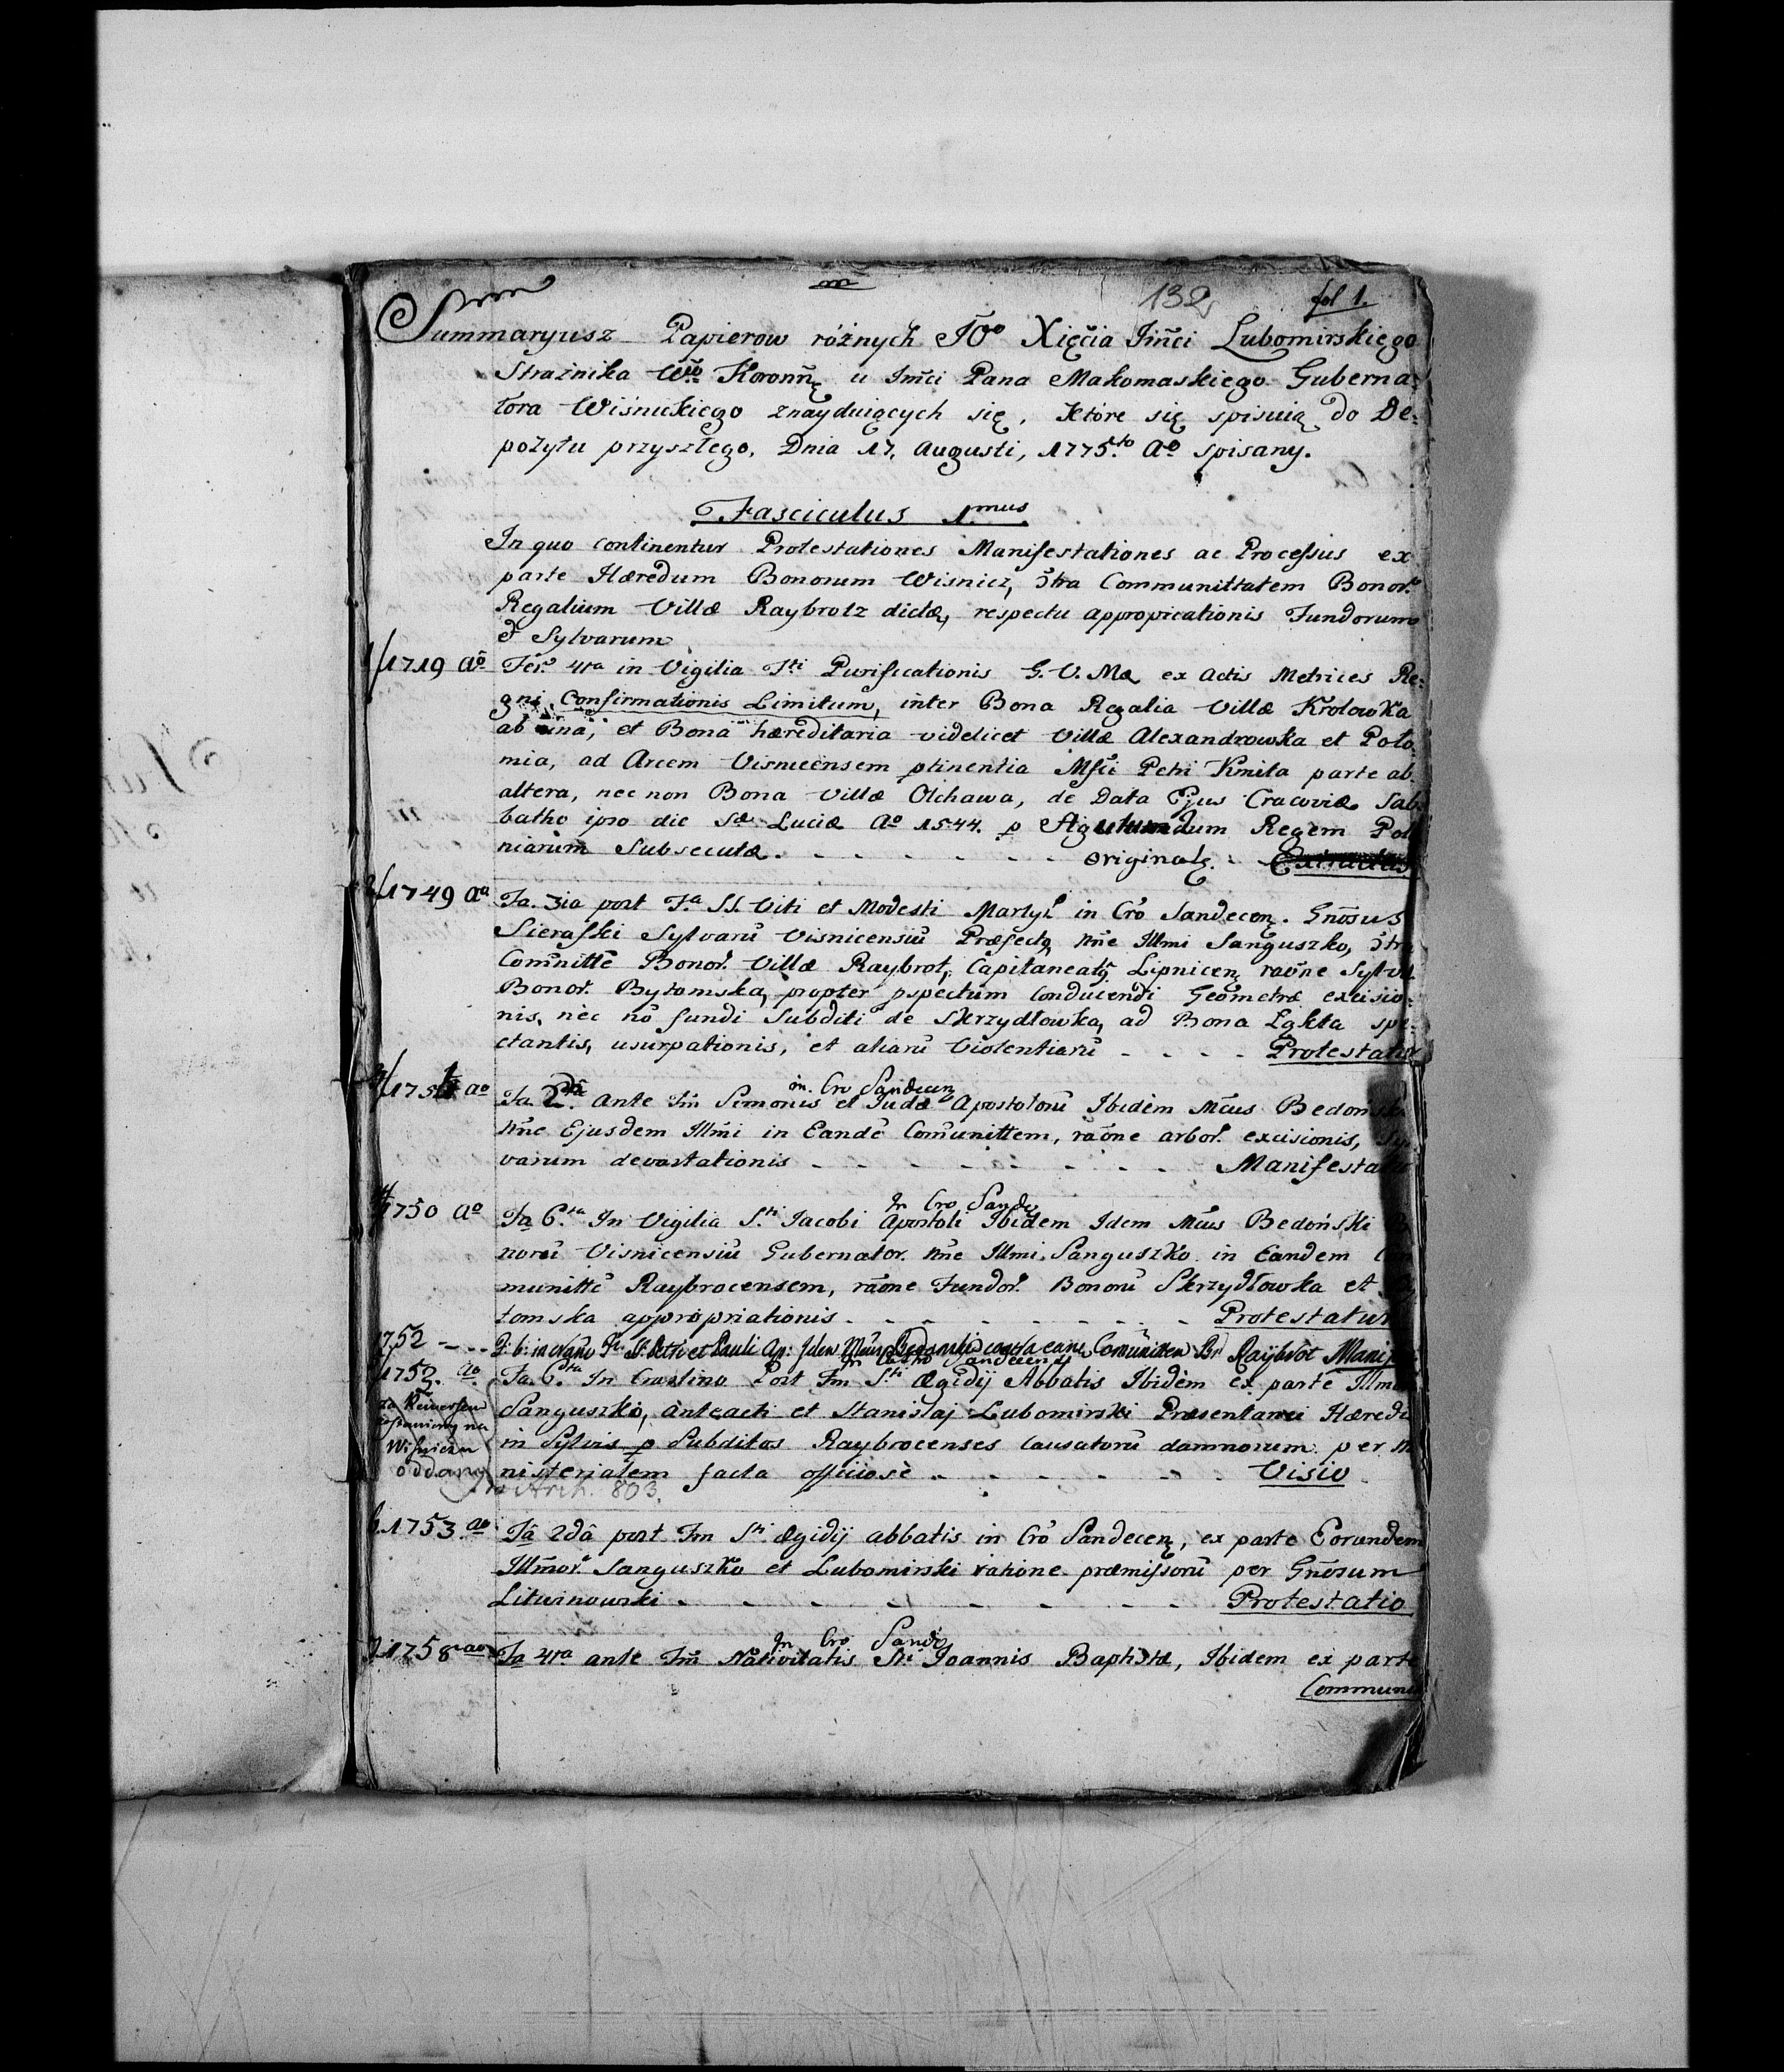 132 fol 1.
Summaryusz Papierow różnych JOo Xięćia Jm̃ci Lubomirskiego
Strażnika Wgo Koronñę u Jm̃ci Pana Makomaskiego Guberna-
tora Wiśnickiego znayduiących się, które się spisuią do De-
pozytu przyszłego, Dnia 17, Augusti, 1775to Ao spisany.
Fasciculus 1mus
In quo continentur Protestationes Manifestationes ac Processus ex
parte Hæredum Bonorum Wisnicz, 3tra Communittatem Bonor.
Regalium Villæ Raybrotz dictæ, respectu appropricationis Fundorum
& Sylvarum
1/1719 Ao Fer. 4ta in Vigilia Sti Purificationis G. V. Mæ ex Actis Metrices Re-
gni Confirmationis Limitum, inter Bona Regalia Villæ Krolowka
ab una, et Bona hæreditaria videlicet Villæ Alexandrowka et Poło-
mia, ad Arcem Visnicensem ptinentia Mfci Petri Kmita parte ab
altera, nec non Bona Villæ Olchawa, de Data Ejus Cracoviæ Sab-
batho ipso die Sæ Luciæ Ao 1544. p Regem Polo
niarum Subsecutæ. originalę. Extractus
2/1749 Aa Fa. 3ia post F.a S.S. Viti et Modesti Martyr. in Cro Sandecenę. Gñosus
Sierafki Sylvarũ Visnicensiũ Præfectq nñe Illmi Sanguszko, 3tra
Com̃nittẽ Bonor. Villæ Raybrot, Capitaneatq Lipnicenę raõne Sylva
Bonor. Bytomska, propter pspectum conducendi Geometræ excisio-
nis, nèc nõ fundi Subditi de Skrzydłowka, ad Bona Egkta spe-
ctantis, usurpationis, et aliarũ Violentiarũ Protestatio
3/175 ao in Cro Sandecen
Fa 2da. ante Fm̃ Simonis et Judæ Apostolorũ Ibidèm Mcus Bedoński
nñe Ejusdem Illm̃i in Eandẽ Com̃unittem, raõne arbor. excisionis, Sy
varum devastationis Manifestatio
4/1750 Ao In Cro Sandę
Fa 6ta In Vigilia S.ti Jacobi Apostoli Ibidem Idem Mcus Bedoński Bo
norũ Visnicensiũ Gubernator nñe Illmi Sanguszko in Eandem Com
munittẽ Raybrocensem, raõne Fundor. Bonorũ Skrzydłowka et By
tomska appropriationis Protestatur
1752 F: 6: in cr̃ano Fti SS. Petri et Pauli Ap: Idem Mcus Bedonski contra eand Com̃unitatem Br Raybrot Manif
In Castro Sandecensi
5/1752. ao Fa 6.ta In Crastino Post Fm Sti Ægidij Abbatis Ibidèm ex parte Illmor
za Rewersem zostawiony na Wisniczu oddany
Sanguszko, anteacti et Stanislaj Lubomirski Præsentanei Hæredũ
in Sylvis p Subditos Raybrocenses causatorũ damnorum per Mi
nisterialem facta officiosè Visio
Arch. 803.
6.1753 ao Fâ 2dâ post Fm Sti Ægidij abbatis in Cro Sandecenę, ex parte Eorundem
Illmor. Sanguszko et Lubomirski ratione præmissorũ per Gñosum
Liturnowski Protestatio
7.1758 ao In Cro Sandę
Fa 4ta ante Fm̃ Nativitatis Sti Joannis Baptistæ, Ibidem ex parte
Communit